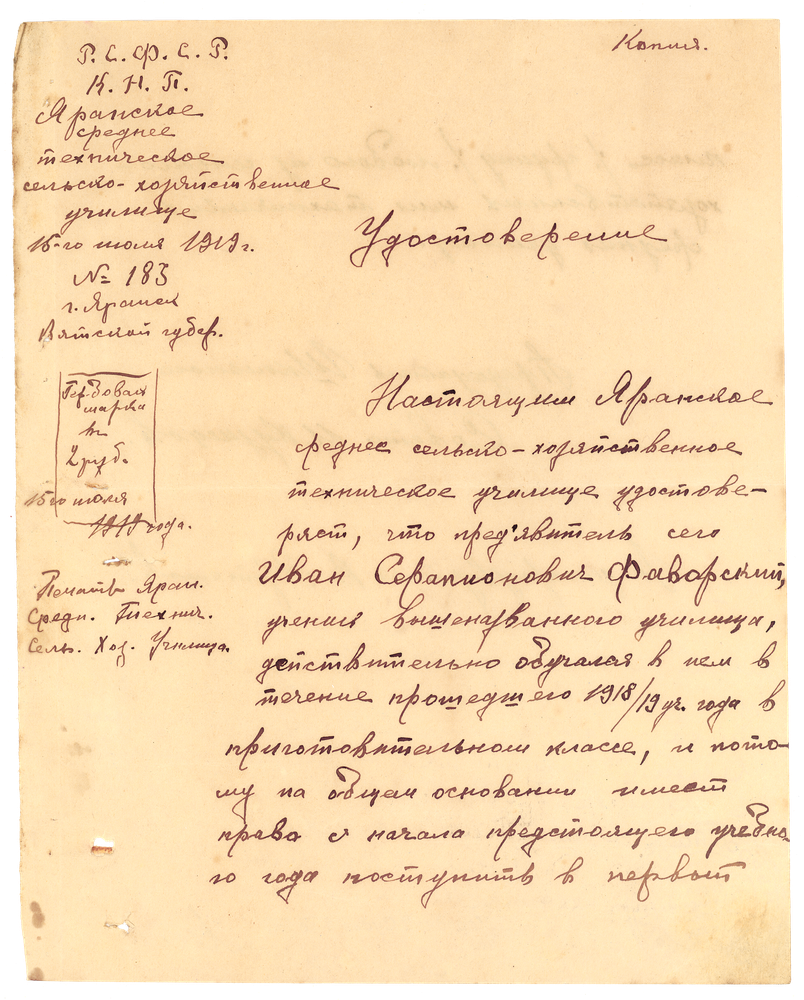 Копия.
Р. С. Ф. С. Р.
К. Н. П.
Яранское
среднее
техническое
сельско-хозяйственное
училище
15-го июля 1919 г.
№ 183
г. Яранск
Вятской губер.
Удостоверение
Гербовая
марка
в
2 руб.
15го июля
1919 года.
Печать Яран.
Средн. Технич.
Сель. Хоз. Училища.
Настоящим Яранское
среднее сельско-хозяйственное
техническое училище удостове-
ряет, что пред'явитель сего
Иван Серапионович Фаворский,
ученик вышеназванного училища,
действительно обучался в нем в
течение прошедшего 1918/19 уч. года в
приготовительном классе, и пото-
му на общем основании имеет
право с начала предстоящего учебно-
го года поступить в первый